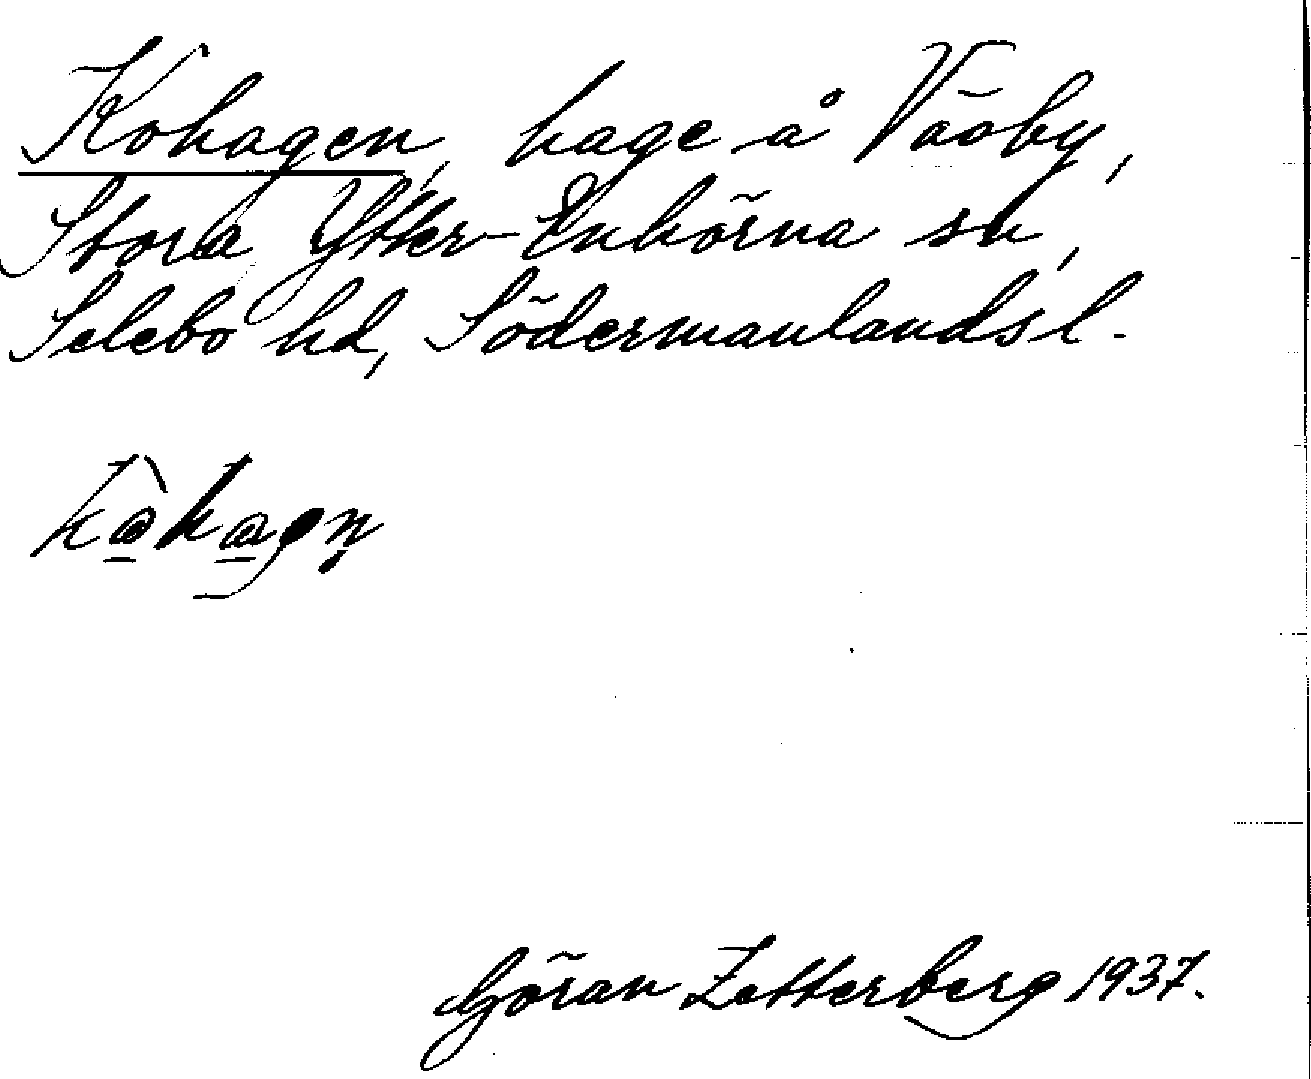 Kohagen, hage å Väsby,
Stora Ytter-Enhörna sn,
Selebo hd, Södermanlands l.
Göran Zetterberg 1937.